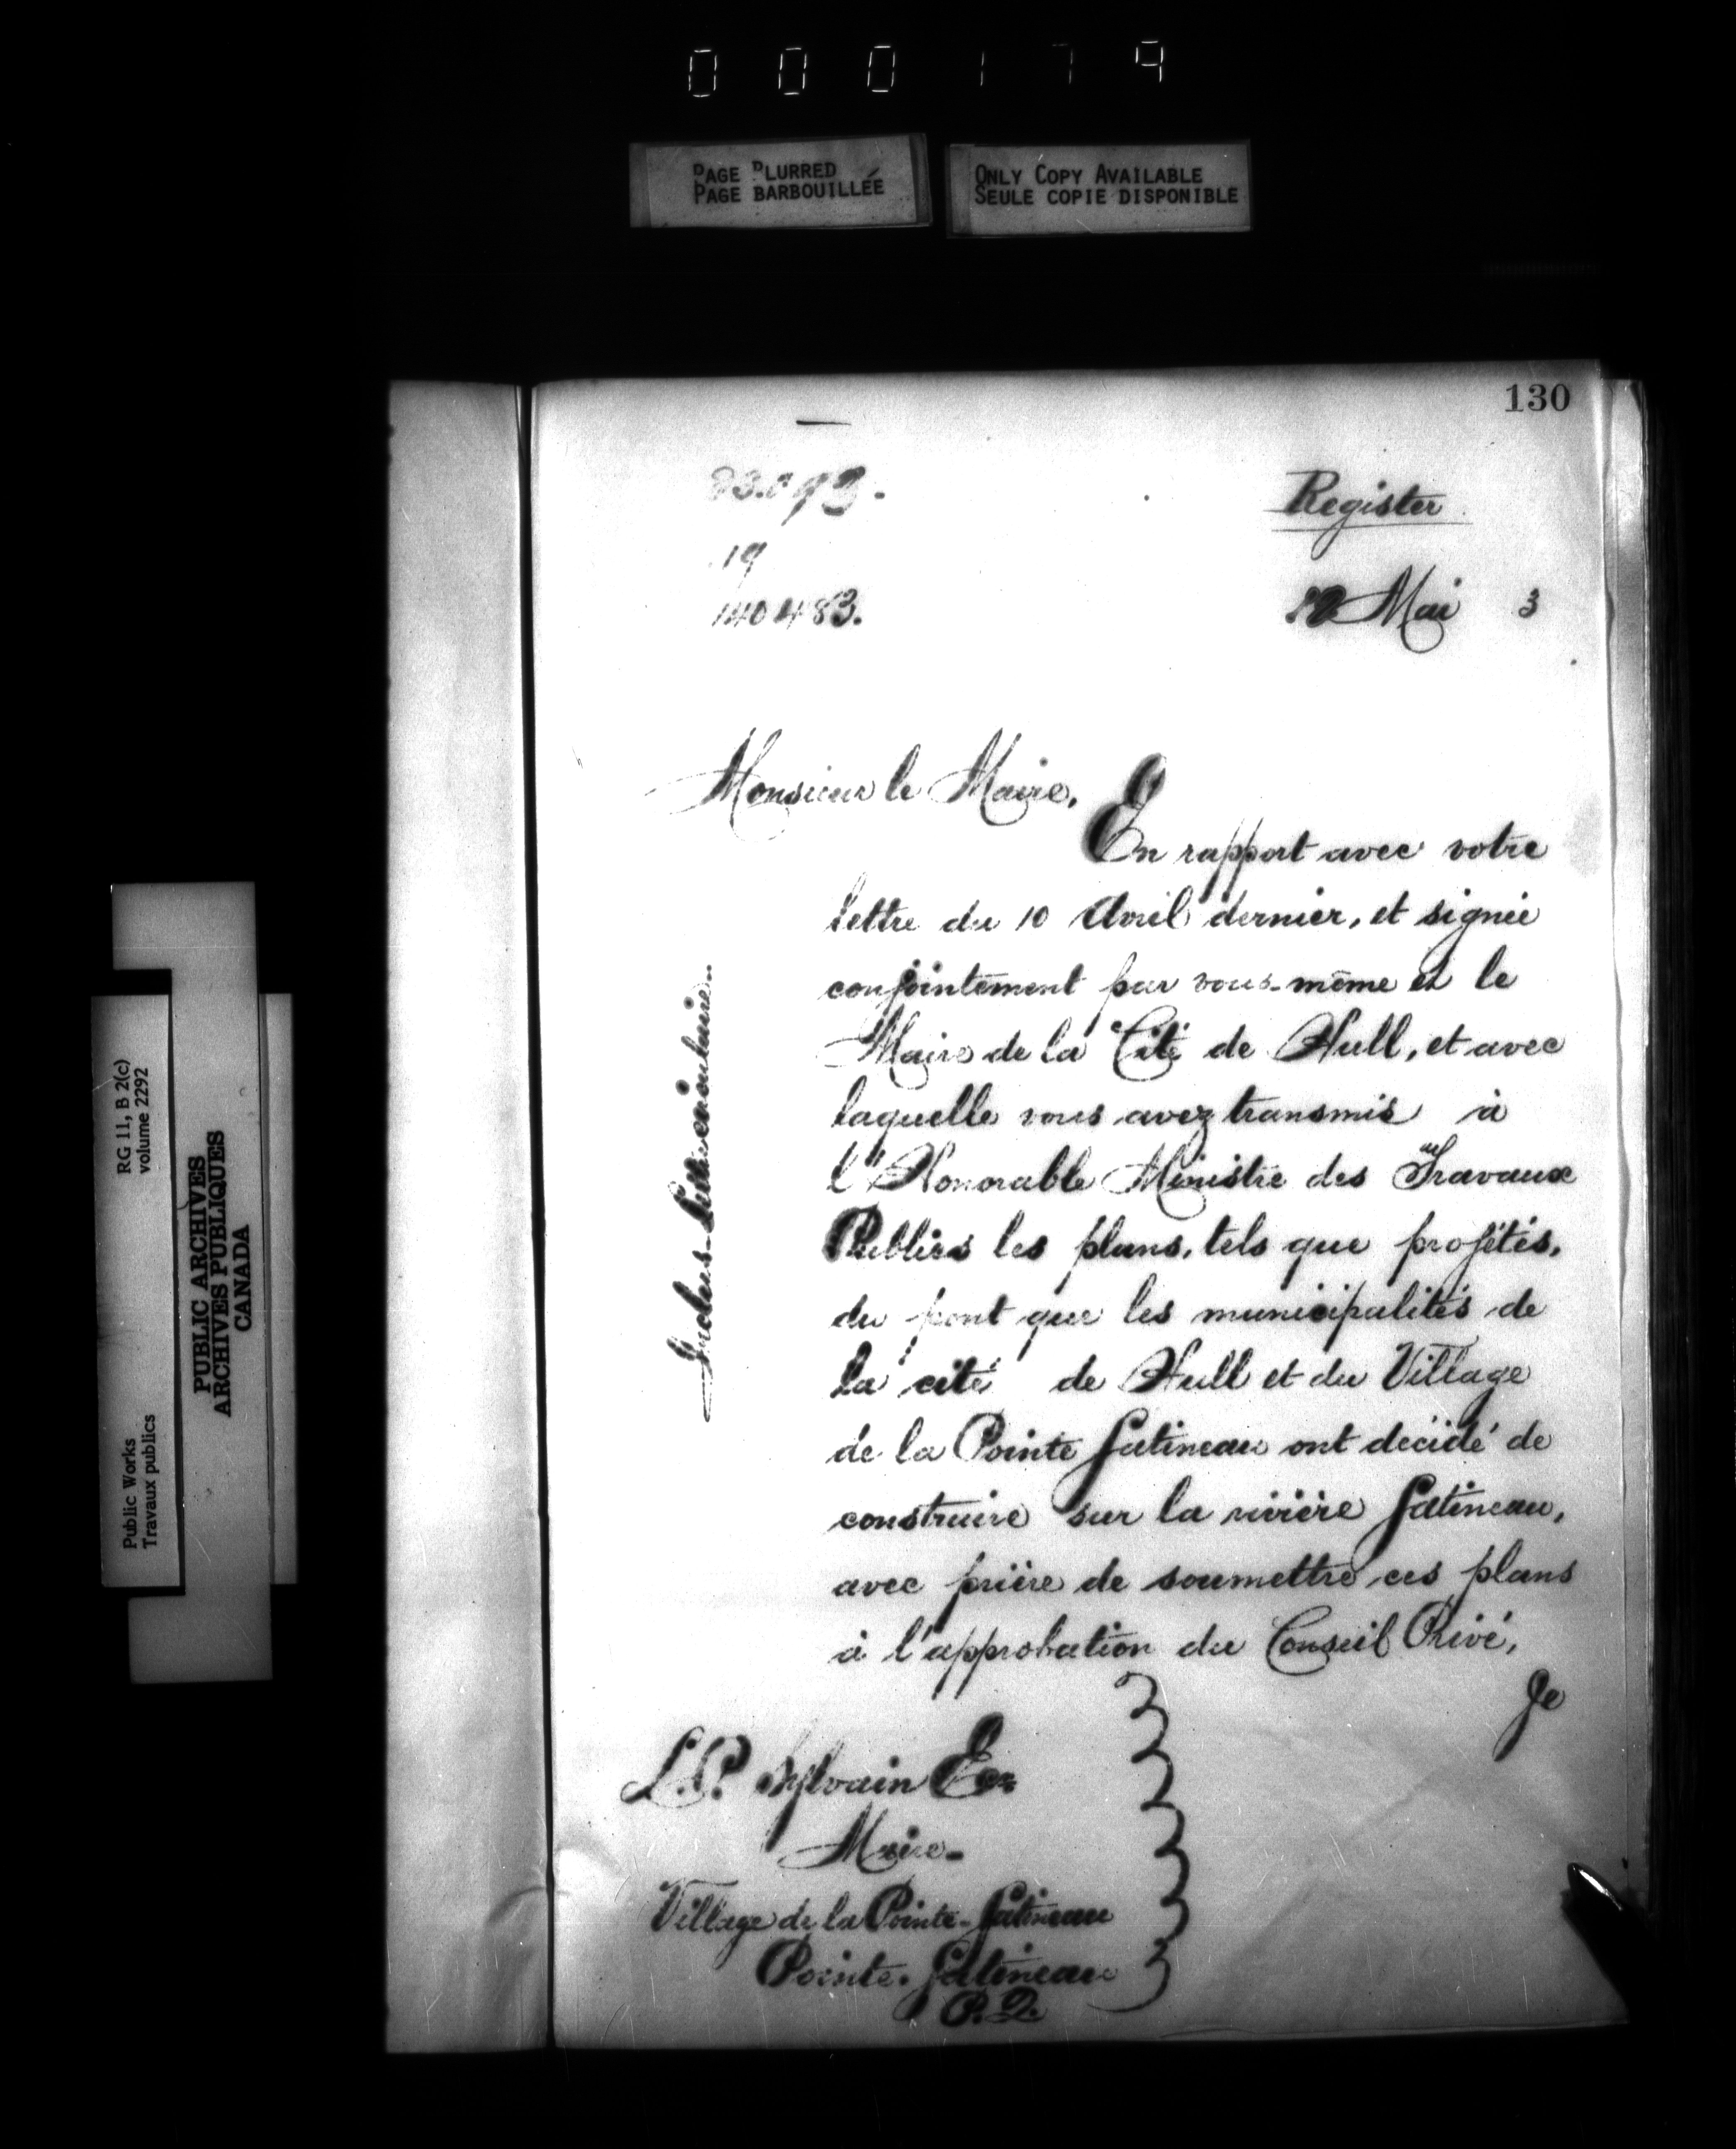 000179
PAGE BLURRED
PAGE BARBOUILLÉE
ONLY COPY AVAILABLE
SEULE COPIE DISPONIBLE
130
Register
19
140483.
12 Mai 3
Monsieur le Maire,
En rapport avec votre
lettre du 10 Avril dernier, et signée
conjointement par vous-même et le
Maire de la Cité de Hull, et avec
laquelle vous avez transmis à
l'Honorable Ministre des Travaux
Publics les plans, tels que projétés,
du pont que les municipalités de
la cité de Hull et du Village
de la Pointe Gatineau ont décidé de
construire sur la rivière Gatineau,
avec prière de soumettre ces plans
à l'approbation du Conseil Privé,
Je
L.P. Sylvain Ecr
Maire-
Village de la Pointe-Gatineau
Pointe-Gatineau
P.Q.
Inclus-Lettre circulaire-
Public Works
Travaux publics
RG 11, B 2(c)
volume 2292
PUBLIC ARCHIVES
ARCHIVES PUBLIQUES
CANADA